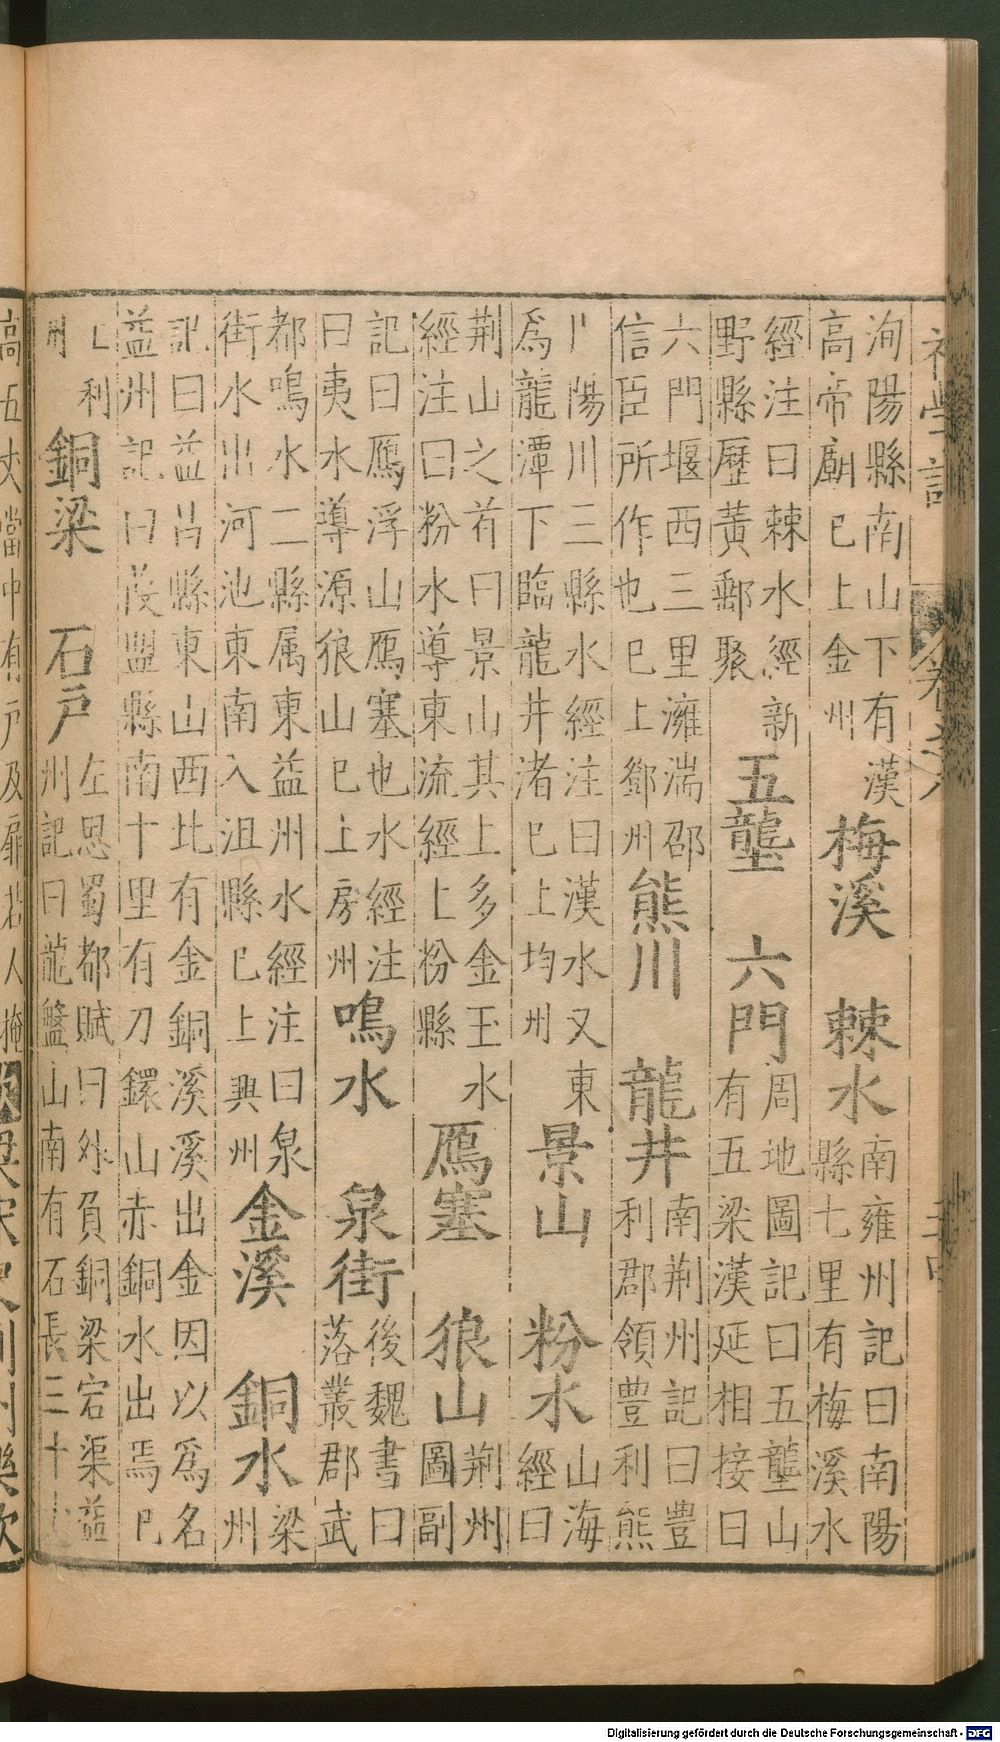 初學記 卷之八
洵陽縣南山下有漢
高帝廟巳上金州
梅溪 棘水
南雍州記曰南陽
縣七里有梅溪水
經注曰棘水經新
野縣歷黃郵聚
五壟 六門
周地圖記曰五壟山
有五梁漢延相接曰
六門堰西三里漼湍邵
信臣所作也巳上鄧州
熊川 龍井
南荆州記曰豊
利郡領豊利熊
川陽川三縣水經注曰漢水又東
爲龍潭下臨龍井渚巳上均州
景山 粉水
山海
經曰
荆山之首曰景山其上多金玉水
經注曰粉水導東流經上粉縣
鴈塞 狼山
荆州
圖副
記曰鴈浮山鴈塞也水經注
曰夷水導源狼山巳上房州
鳴水 泉街
後魏書曰
落叢郡武
都鳴水二縣属東益州水經注曰泉
街水出河池東南入沮縣巳上興州
金溪 銅水
梁
州
記曰益昌縣東山西北有金銅溪溪出金因以爲名
益州記曰葭盟縣南十里有刀鐶山赤銅水出焉巳
上利
州
銅梁 石戶
左思蜀都賦曰外負銅梁宕渠益
州記曰龍盤山南有石長三十
高五丈當中有戶及扉若人掩
Digitalisierung gefördert durch die Deutsche Forschungsgemeinschaft - DFG